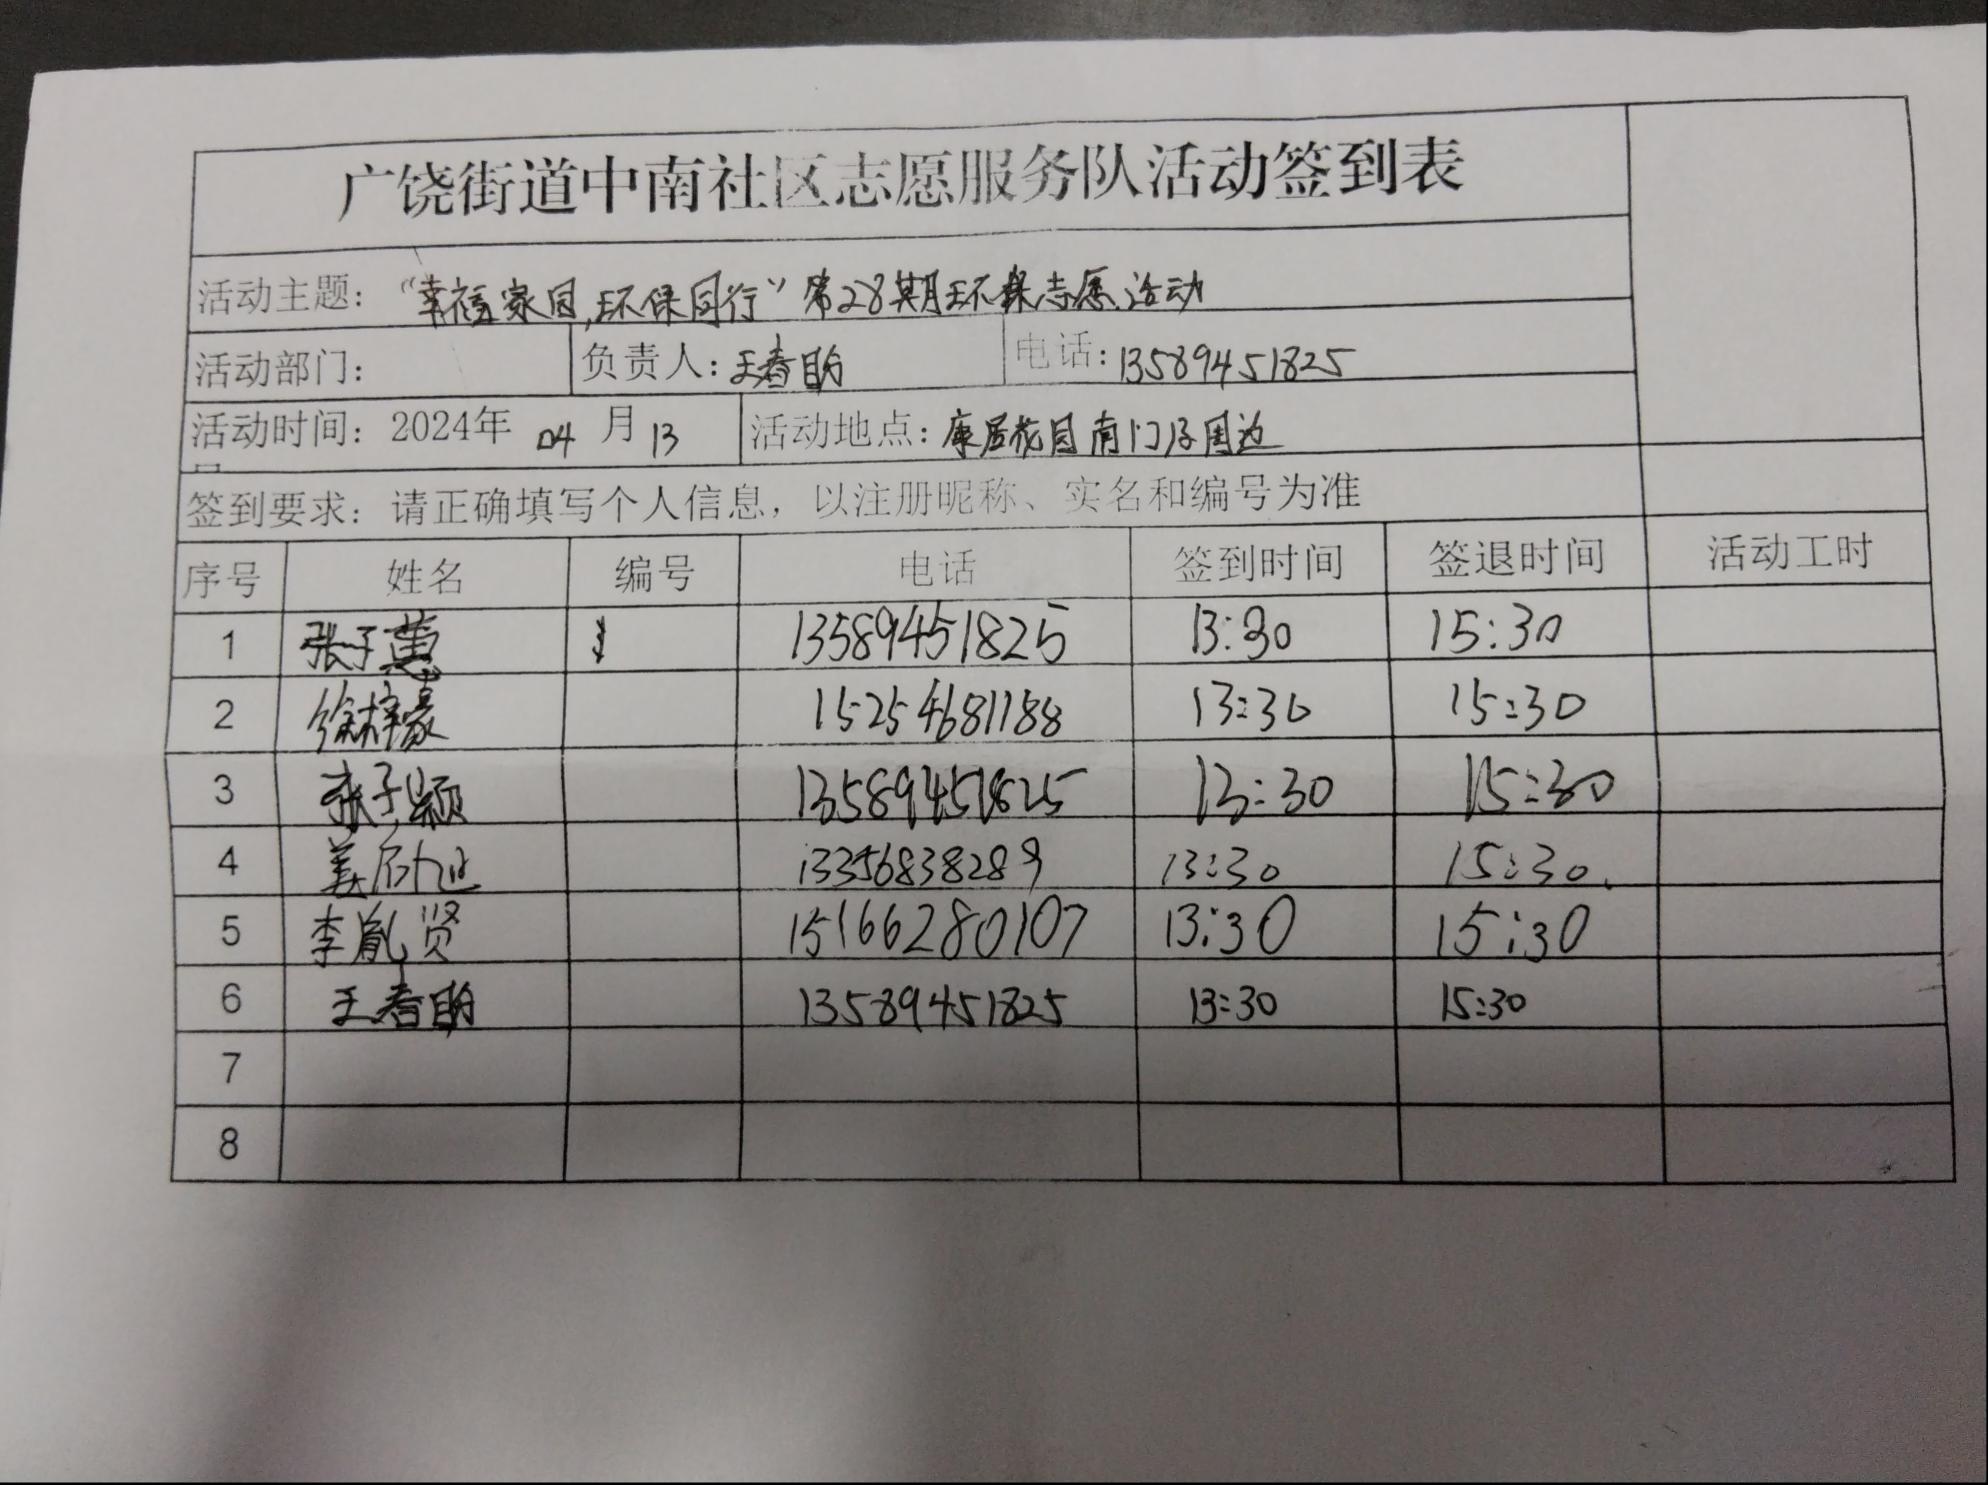 广饶街道中南社区志愿服务队活动签到表
活动主题：“幸福家园,环保同行”第28期环保志愿活动
活动部门： 负责人：王春 电话：13589451825
活动时间：2024年 04 月 13 活动地点：康居花园南门及周边
签到要求：请正确填写个人信息，以注册昵称、实名和编号为准
序号 姓名 编号 电话 签到时间 签退时间 活动工时
1 张子蕙 13589451825 13:30 15:30
2 徐梓豪 15254681188 13:30 15:30
3 张子颖 13589451825 13:30 15:30
4 13356838289 13:30 15:30
5 李胤贤 15166280107 13:30 15:30
6 王春 13589451825 13:30 15:30
7
8